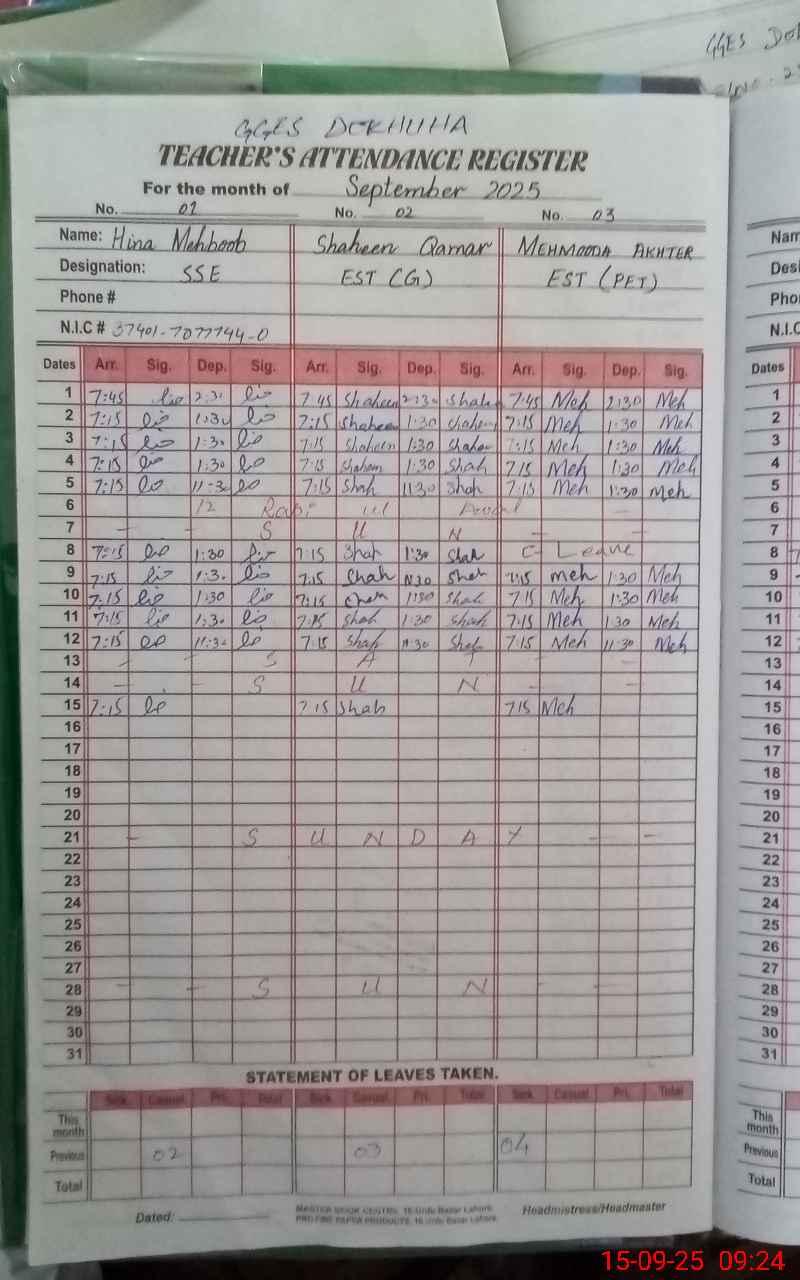 GGES DOK
GGES DOKHUHA
TEACHER'S ATTENDANCE REGISTER
For the month of September 2025
No. 01 No. 02 No. 03
Name: Hina Mehboob Shaheen Qamar MEHMOODA AKHTER
Designation: SSE EST (G) EST (PET)
Phone #
N.I.C # 37401-7077744-0
Dates Arr. Sig. Dep. Sig. Arr. Sig. Dep. Sig. Arr. Sig. Dep. Sig.
1 7:45 2:30 7 45 Shaheen 2:30 Shahe 7:45 Meh 2:30 Meh
2 7:15 1:30 7:15 Shaheen 1:30 Shaheen 7:15 Meh 1:30 Meh
3 7:15 1:30 7:15 Shaheen 1:30 Shaheen 7:15 Meh 1:30 Meh
4 7:15 1:30 7:15 Shaheen 1:30 Shah 7 15 Meh 1:30 Meh
5 7:15 11:30 7:15 Shah 11:30 Shah 7:15 Meh 1:30 Meh
6 12 Rabi ul Awal –
7 – – S U N – –
8 7:15 1:30 7:15 Shah 1:30 Shah C- Leave
9 7:15 1:30 7:15 Shah 1:30 Shah 7:15 meh 1:30 Meh
10 7:15 1:30 7:15 Shah 1:30 Shah 7 15 Meh 1:30 Meh
11 7:15 1:30 7:15 Shah 1:30 Shah 7:15 Meh 1 30 Meh
12 7:15 11:30 7:15 Shah 11:30 Shah 7:15 Meh 11:30 Meh
13 – – S A T – –
14 – – S U N – –
15 7:15 7 15 Shah 7 15 Meh
16
17
18
19
20
21 – S U N D A Y – –
22
23
24
25
26
27
28 – – S U N – –
29
30
31
STATEMENT OF LEAVES TAKEN.
Sick Casual Pri. Total Sick Casual Pri. Total Sick Casual Pri. Total
This month
Previous 02 03 04
Total
Dated:
MASTER BOOK CENTRE, 16 Urdu Bazar Lahore
Headmistress/Headmaster
Nam
Desi
Pho
N.I.C
Dates
1
2
3
4
5
6
7
8
9
10
11
12
13
14
15
16
17
18
19
20
21
22
23
24
25
26
27
28
29
30
31
This month
Previous
Total
15-09-25 09:24